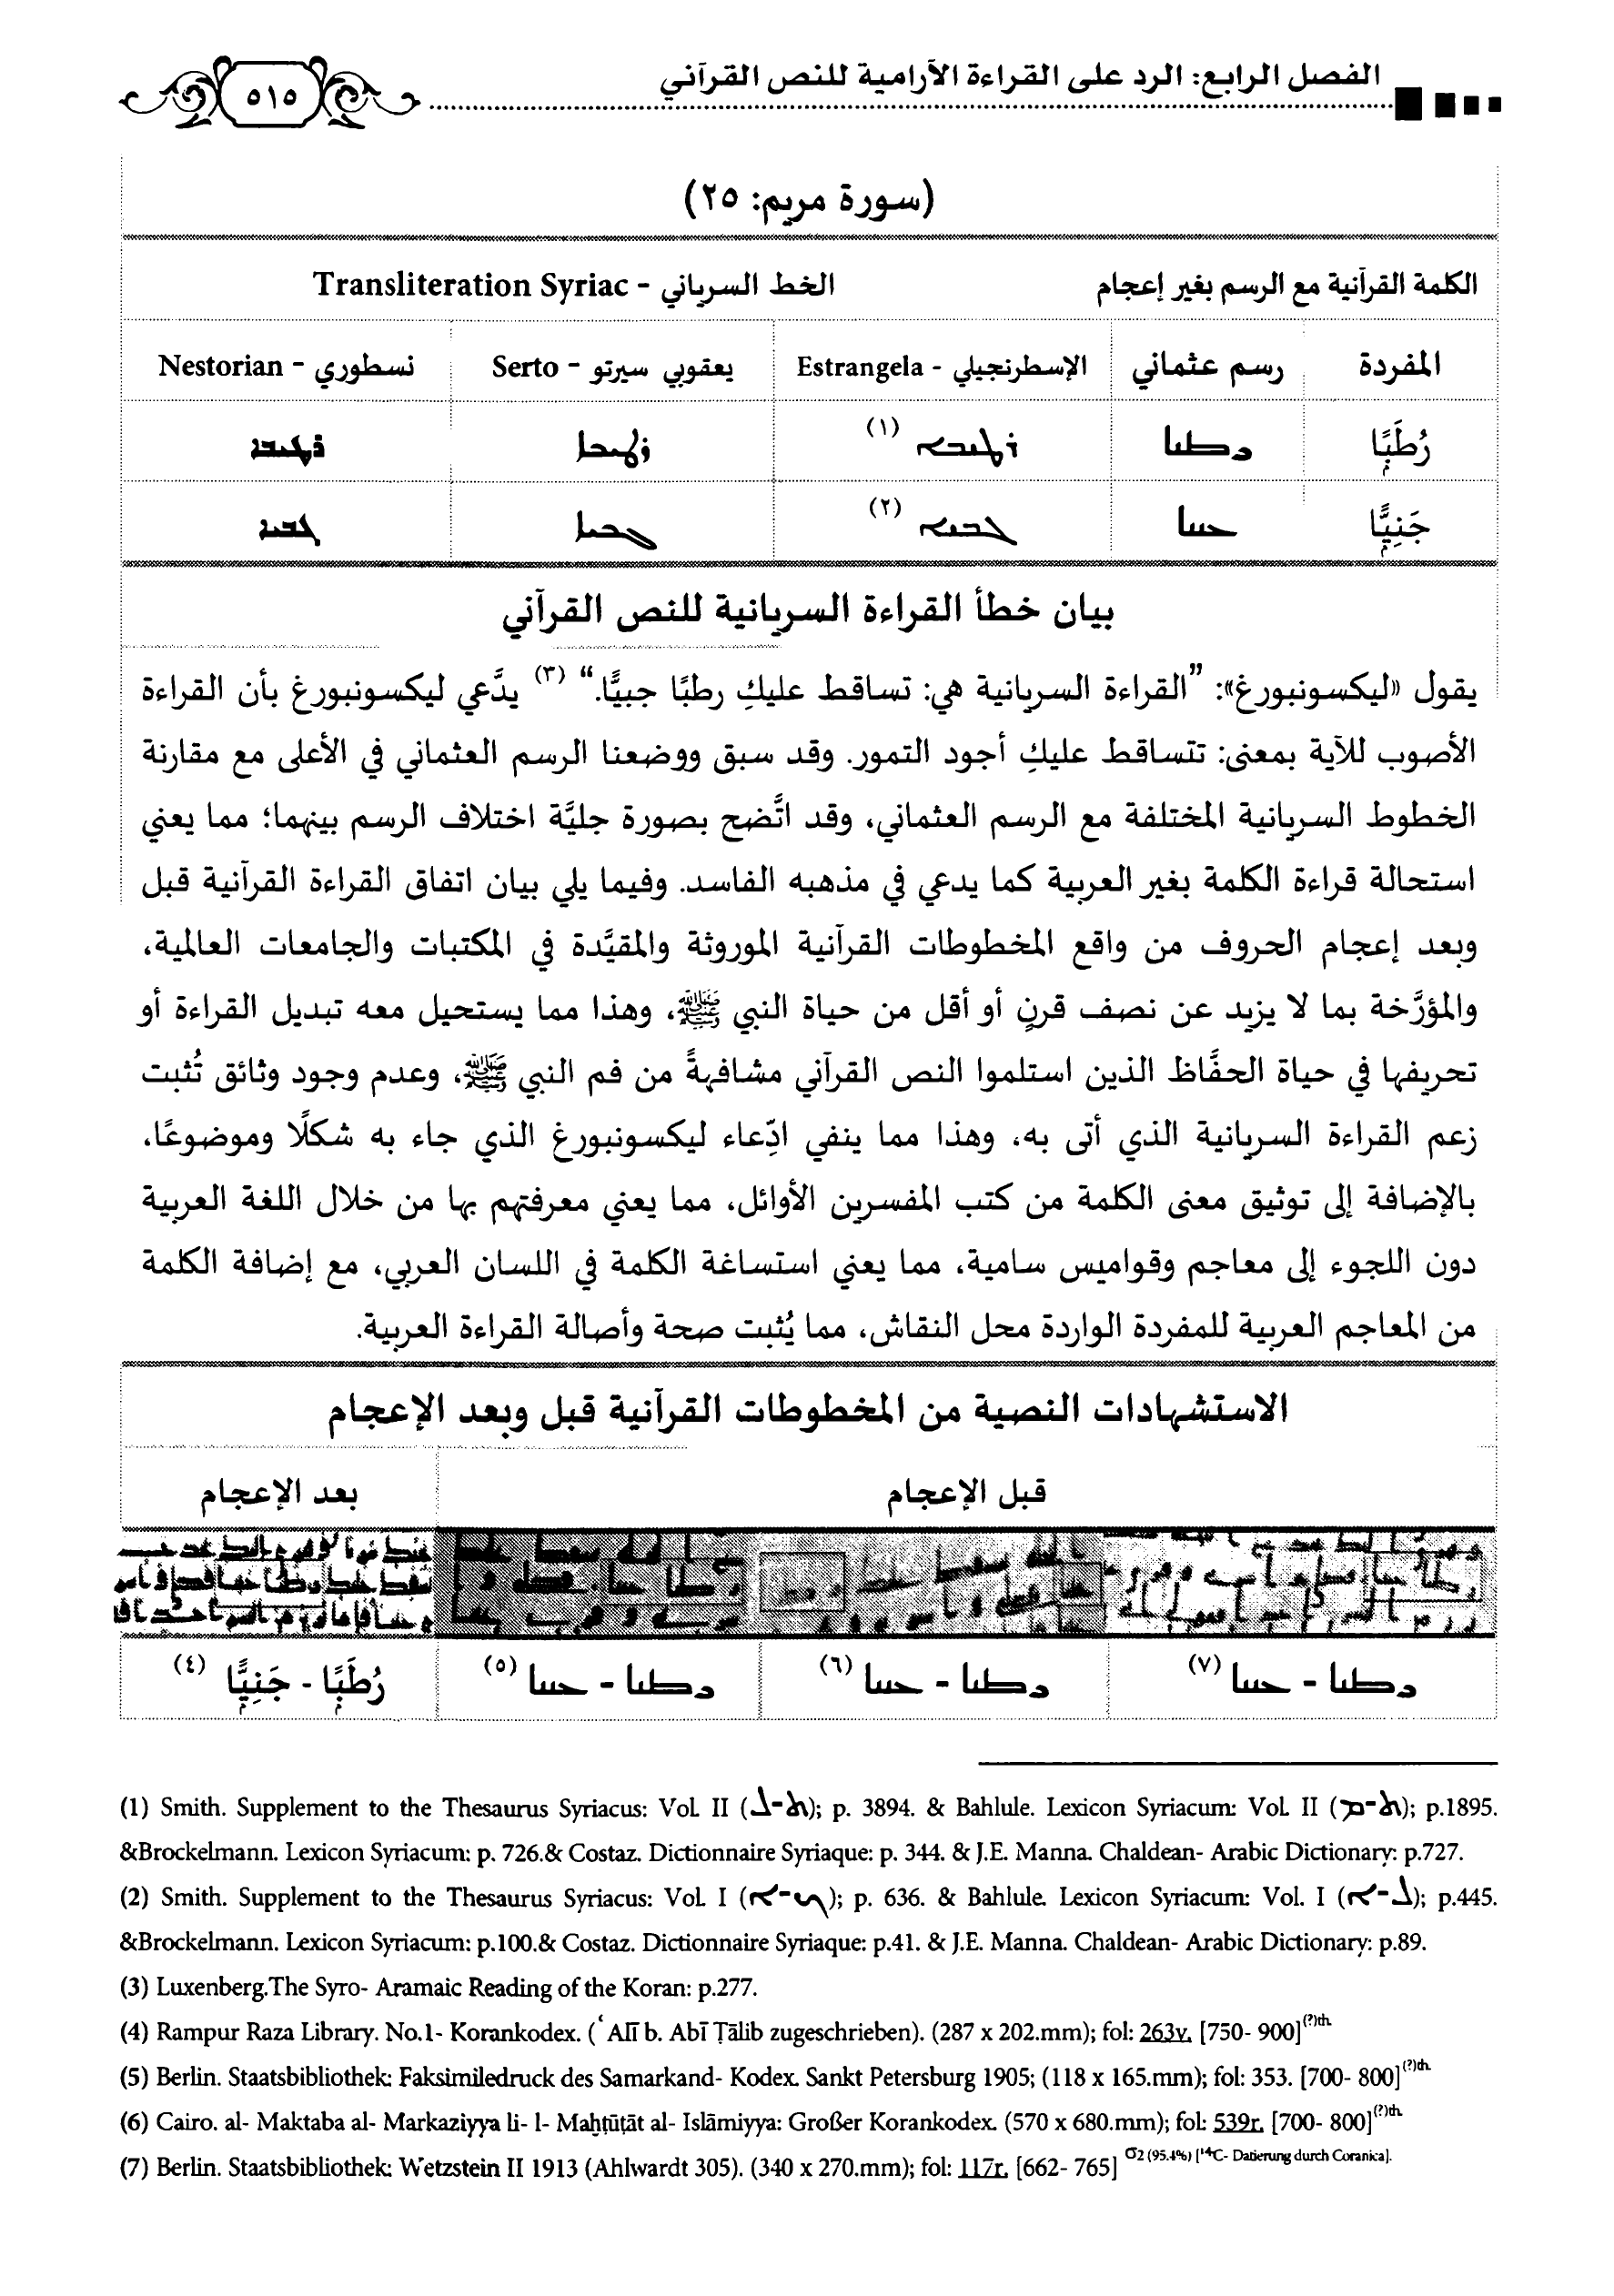 الفصل الرابع: الرد على القراءة الآرامية للنص القرآني
٥١٥
(سورة مريم: ٢٥)
الكلمة القرآنية مع الرسم بغير إعجام
الخط السرياني - Transliteration Syriac
المفردة
رسم عثماني
الإسطرنجيلي - Estrangela
يعقوبي سيرتو - Serto
نسطوري - Nestorian
رُطَبًا
(١)
جَنِيًّا
(٢)
بيان خطأ القراءة السريانية للنص القرآني
يقول «ليكسونبورغ»: ”القراءة السريانية هي: تساقط عليكِ رطبًا جبيًّا.“ (٣) يدَّعي ليكسونبورغ بأن القراءة
الأصوب للآية بمعنى: تتساقط عليكِ أجود التمور. وقد سبق ووضعنا الرسم العثماني في الأعلى مع مقارنة
الخطوط السريانية المختلفة مع الرسم العثماني، وقد اتَّضح بصورة جليَّة اختلاف الرسم بينهما؛ مما يعني
استحالة قراءة الكلمة بغير العربية كما يدعي في مذهبه الفاسد. وفيما يلي بيان اتفاق القراءة القرآنية قبل
وبعد إعجام الحروف من واقع المخطوطات القرآنية الموروثة والمقيَّدة في المكتبات والجامعات العالمية،
والمؤرَّخة بما لا يزيد عن نصف قرنٍ أو أقل من حياة النبي ﷺ، وهذا مما يستحيل معه تبديل القراءة أو
تحريفها في حياة الحفَّاظ الذين استلموا النص القرآني مشافهةً من فم النبي ﷺ، وعدم وجود وثائق تُثبت
زعم القراءة السريانية الذي أتى به، وهذا مما ينفي ادِّعاء ليكسونبورغ الذي جاء به شكلًا وموضوعًا،
بالإضافة إلى توثيق معنى الكلمة من كتب المفسرين الأوائل، مما يعني معرفتهم بها من خلال اللغة العربية
دون اللجوء إلى معاجم وقواميس سامية، مما يعني استساغة الكلمة في اللسان العربي، مع إضافة الكلمة
من المعاجم العربية للمفردة الواردة محل النقاش، مما يُثبت صحة وأصالة القراءة العربية.
الاستشهادات النصية من المخطوطات القرآنية قبل وبعد الإعجام
قبل الإعجام
بعد الإعجام
(٧)
(٦)
(٥)
رُطَبًا - جَنِيًّا (٤)
(1) Smith. Supplement to the Thesaurus Syriacus: Vol. II (ܬ-ܠ); p. 3894. & Bahlule. Lexicon Syriacum: Vol. II (ܬ-ܡ); p.1895.
&Brockelmann. Lexicon Syriacum: p. 726.& Costaz. Dictionnaire Syriaque: p. 344. & J.E. Manna. Chaldean- Arabic Dictionary: p.727.
(2) Smith. Supplement to the Thesaurus Syriacus: Vol. I (ܐ-ܟ); p. 636. & Bahlule. Lexicon Syriacum: Vol. I (ܐ-ܠ); p.445.
&Brockelmann. Lexicon Syriacum: p.100.& Costaz. Dictionnaire Syriaque: p.41. & J.E. Manna. Chaldean- Arabic Dictionary: p.89.
(3) Luxenberg.The Syro- Aramaic Reading of the Koran: p.277.
(4) Rampur Raza Library. No.1- Korankodex. (ʿAlī b. Abī Ṭālib zugeschrieben). (287 x 202.mm); fol: 263v. [750- 900](?)th.
(5) Berlin. Staatsbibliothek: Faksimiledruck des Samarkand- Kodex. Sankt Petersburg 1905; (118 x 165.mm); fol: 353. [700- 800](?)th.
(6) Cairo. al- Maktaba al- Markaziyya li- l- Maḫṭūṭāt al- Islāmiyya: Großer Korankodex. (570 x 680.mm); fol: 539r. [700- 800](?)th.
(7) Berlin. Staatsbibliothek: Wetzstein II 1913 (Ahlwardt 305). (340 x 270.mm); fol: 117r. [662- 765] σ2 (95.4%) [14C- Datierung durch Coranica].